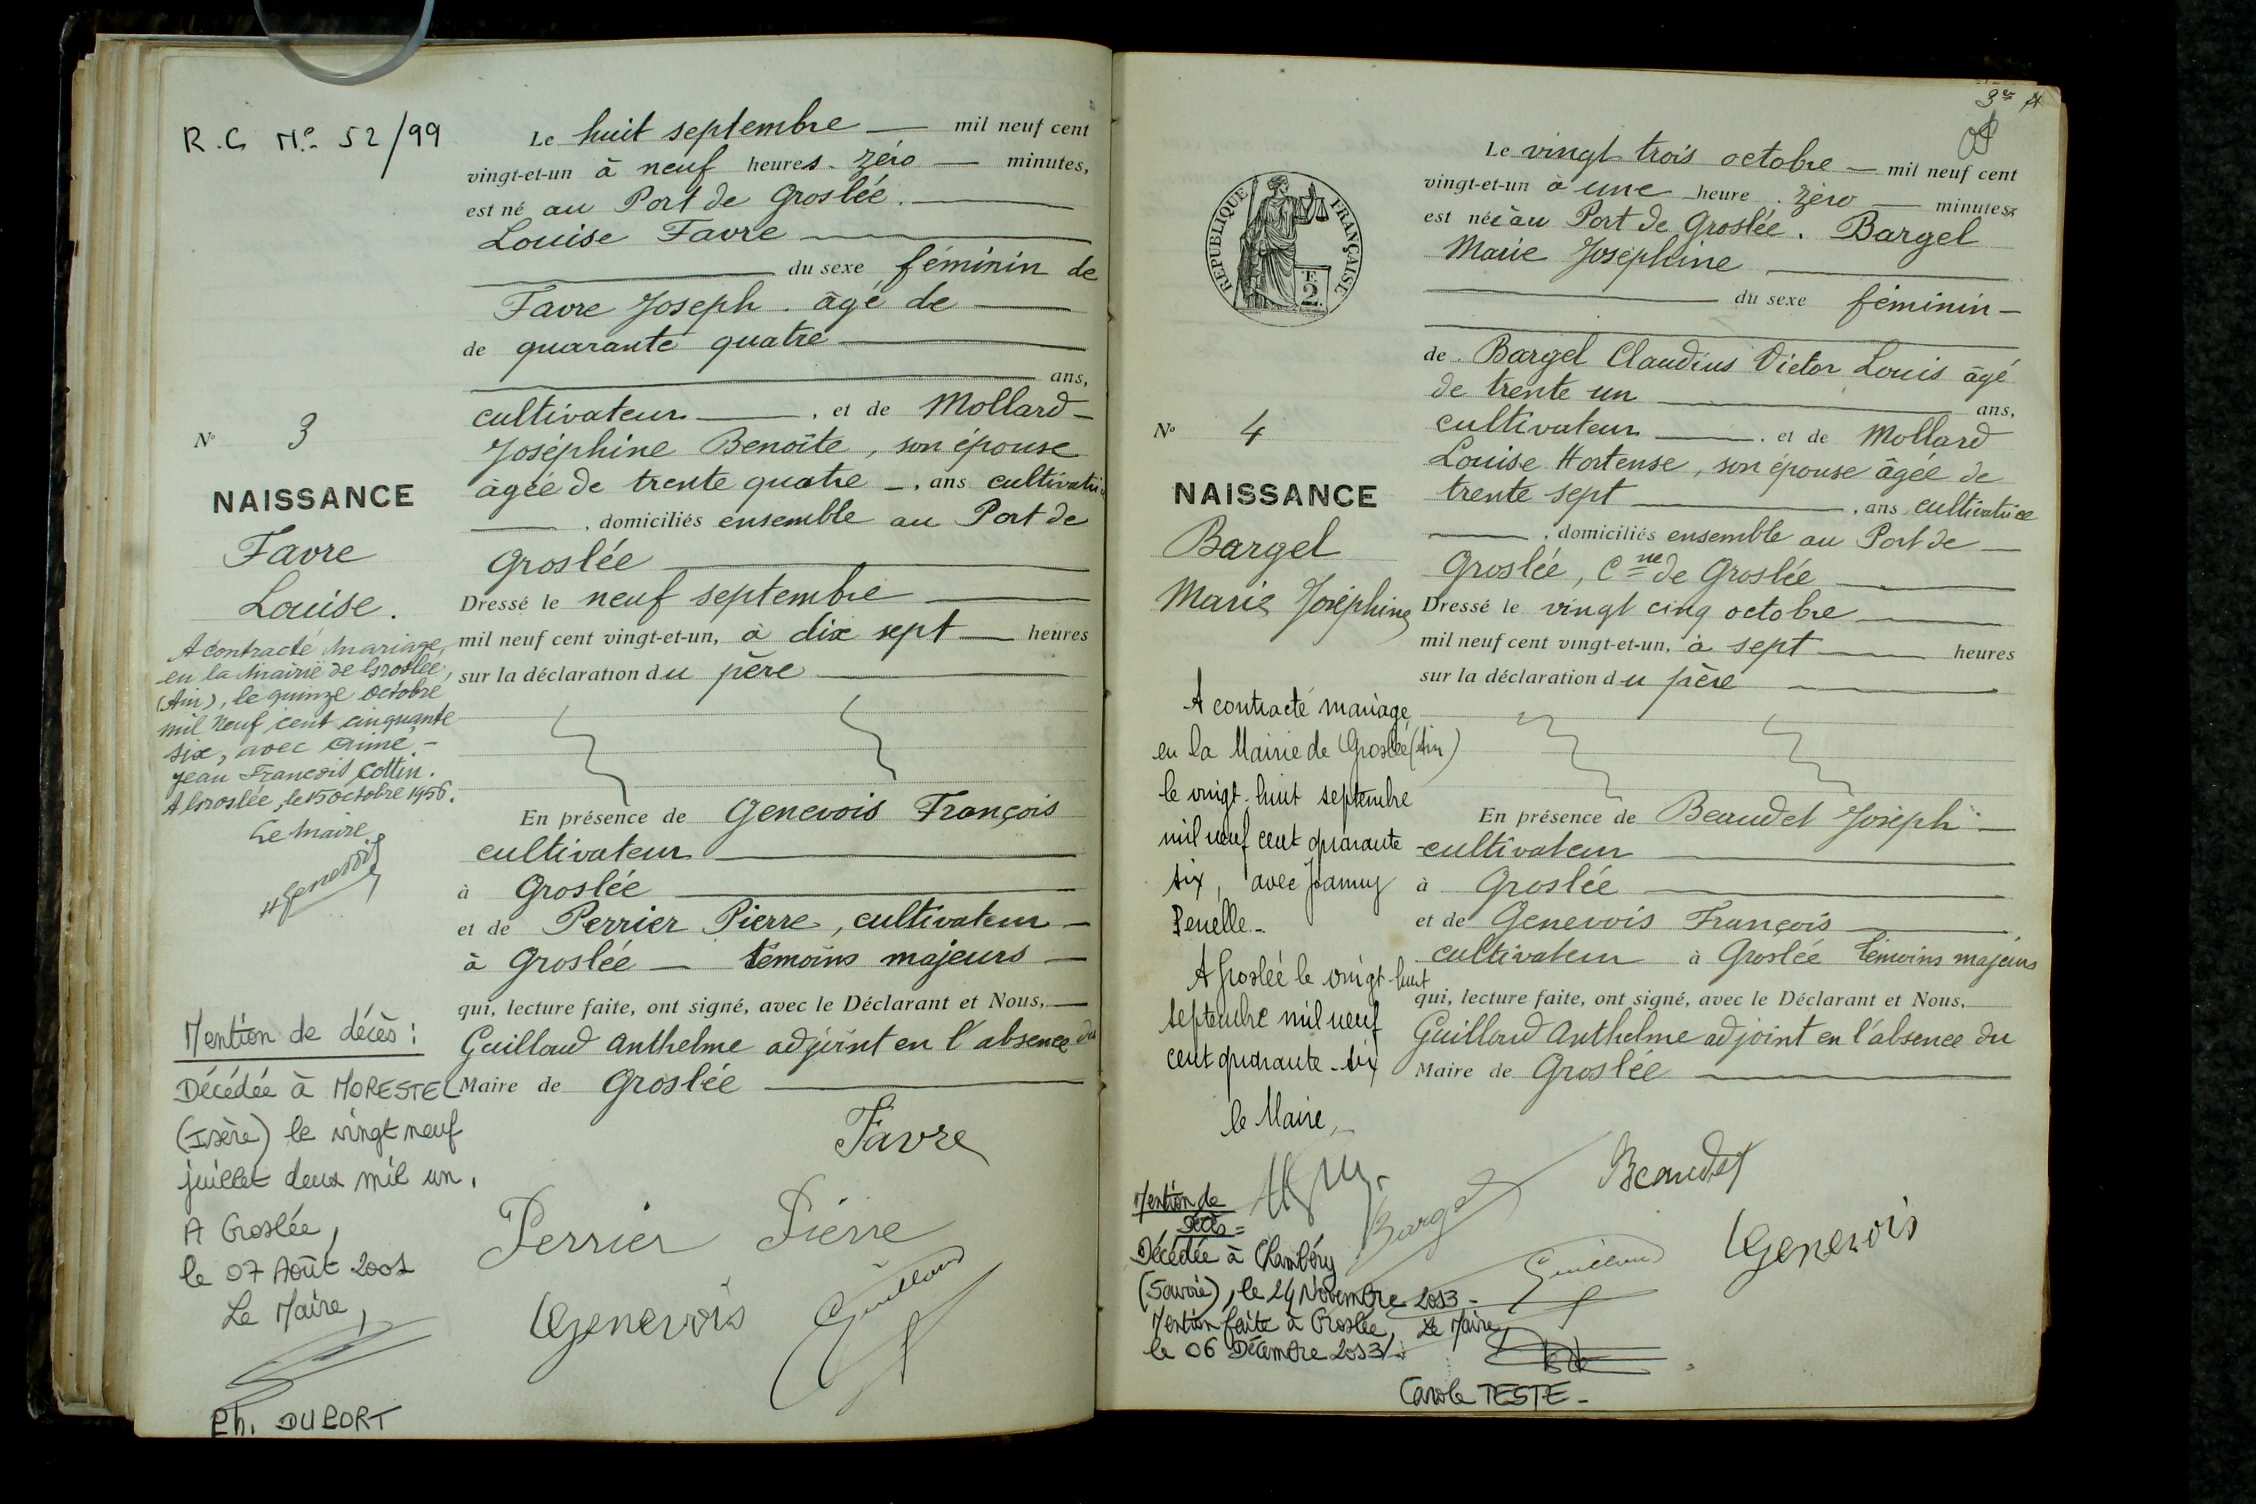 R.C. No. 52/99
Le huit septembre — mil neuf cent
vingt-et-un à neuf heures. zéro — minutes,
est né au Port de Groslée.
Louise Favre
du sexe féminin de
Favre Joseph. âgé de
de quarante quatre
ans,
cultivateur, et de Mollard
Joséphine Benoîte, son épouse
âgée de trente quatre —, ans cultivatrice
, domiciliés ensemble au Port de
Groslée
Dressé le neuf septembre
mil neuf cent vingt-et-un, à dix sept — heures
sur la déclaration du père
En présence de Genevois François
cultivateur
à Groslée
et de Perrier Pierre, cultivateur
à Groslée — témoins majeurs
qui, lecture faite, ont signé, avec le Déclarant et Nous,
Guilloud Anthelme adjoint en l'absence du
Maire de Groslée
Favre
Perrier Pierre
Genevois Guilloud
No 3
NAISSANCE
Favre
Louise.
A contracté mariage,
en la mairie de Groslée,
(Ain), le quinze octobre
mil neuf cent cinquante
six, avec Aimé
Jean François Cottin.
A Groslée, le 15 octobre 1956.
Le Maire
HGenevois
Mention de décès :
Décédée à MORESTEL
(Isère) le vingt neuf
juillet deux mil un.
A Groslée,
le 07 Août 2001
Le Maire,
Ph. DUPORT
3e
Le vingt trois octobre — mil neuf cent
vingt-et-un à une heure. zéro — minutes
est née au Port de Groslée. Bargel
Marie Joséphine
du sexe féminin
de Bargel Claudius Victor Louis âgé
de trente un ans,
cultivateur, et de Mollard
Louise Hortense, son épouse âgée de
trente sept, ans cultivatrice
, domiciliés ensemble au Port de
Groslée, Cne de Groslée
Dressé le vingt cinq octobre
mil neuf cent vingt-et-un, à sept heures
sur la déclaration du père
En présence de Beaudet Joseph
cultivateur
à Groslée
et de Genevois François
cultivateur à Groslée témoins majeurs
qui, lecture faite, ont signé, avec le Déclarant et Nous,
Guilloud Anthelme adjoint en l'absence du
Maire de Groslée
Beaudet
Bargel
Guilloud Genevois
RÉPUBLIQUE FRANÇAISE
F
2
No 4
NAISSANCE
Bargel
Marie Joséphine
A contracté mariage
en la Mairie de Groslée (Ain)
le vingt-huit septembre
mil neuf cent quarante
six, avec Joanny
Penelle
A Groslée le vingt-huit
septembre mil neuf
cent quarante-six
le Maire,
Mention de
Décès =
Décédée à Chambéry
(Savoie), le 24 Novembre 2013
Mention faite à Groslée,
le 06 Décembre 2013
Le Maire
Carole TESTE